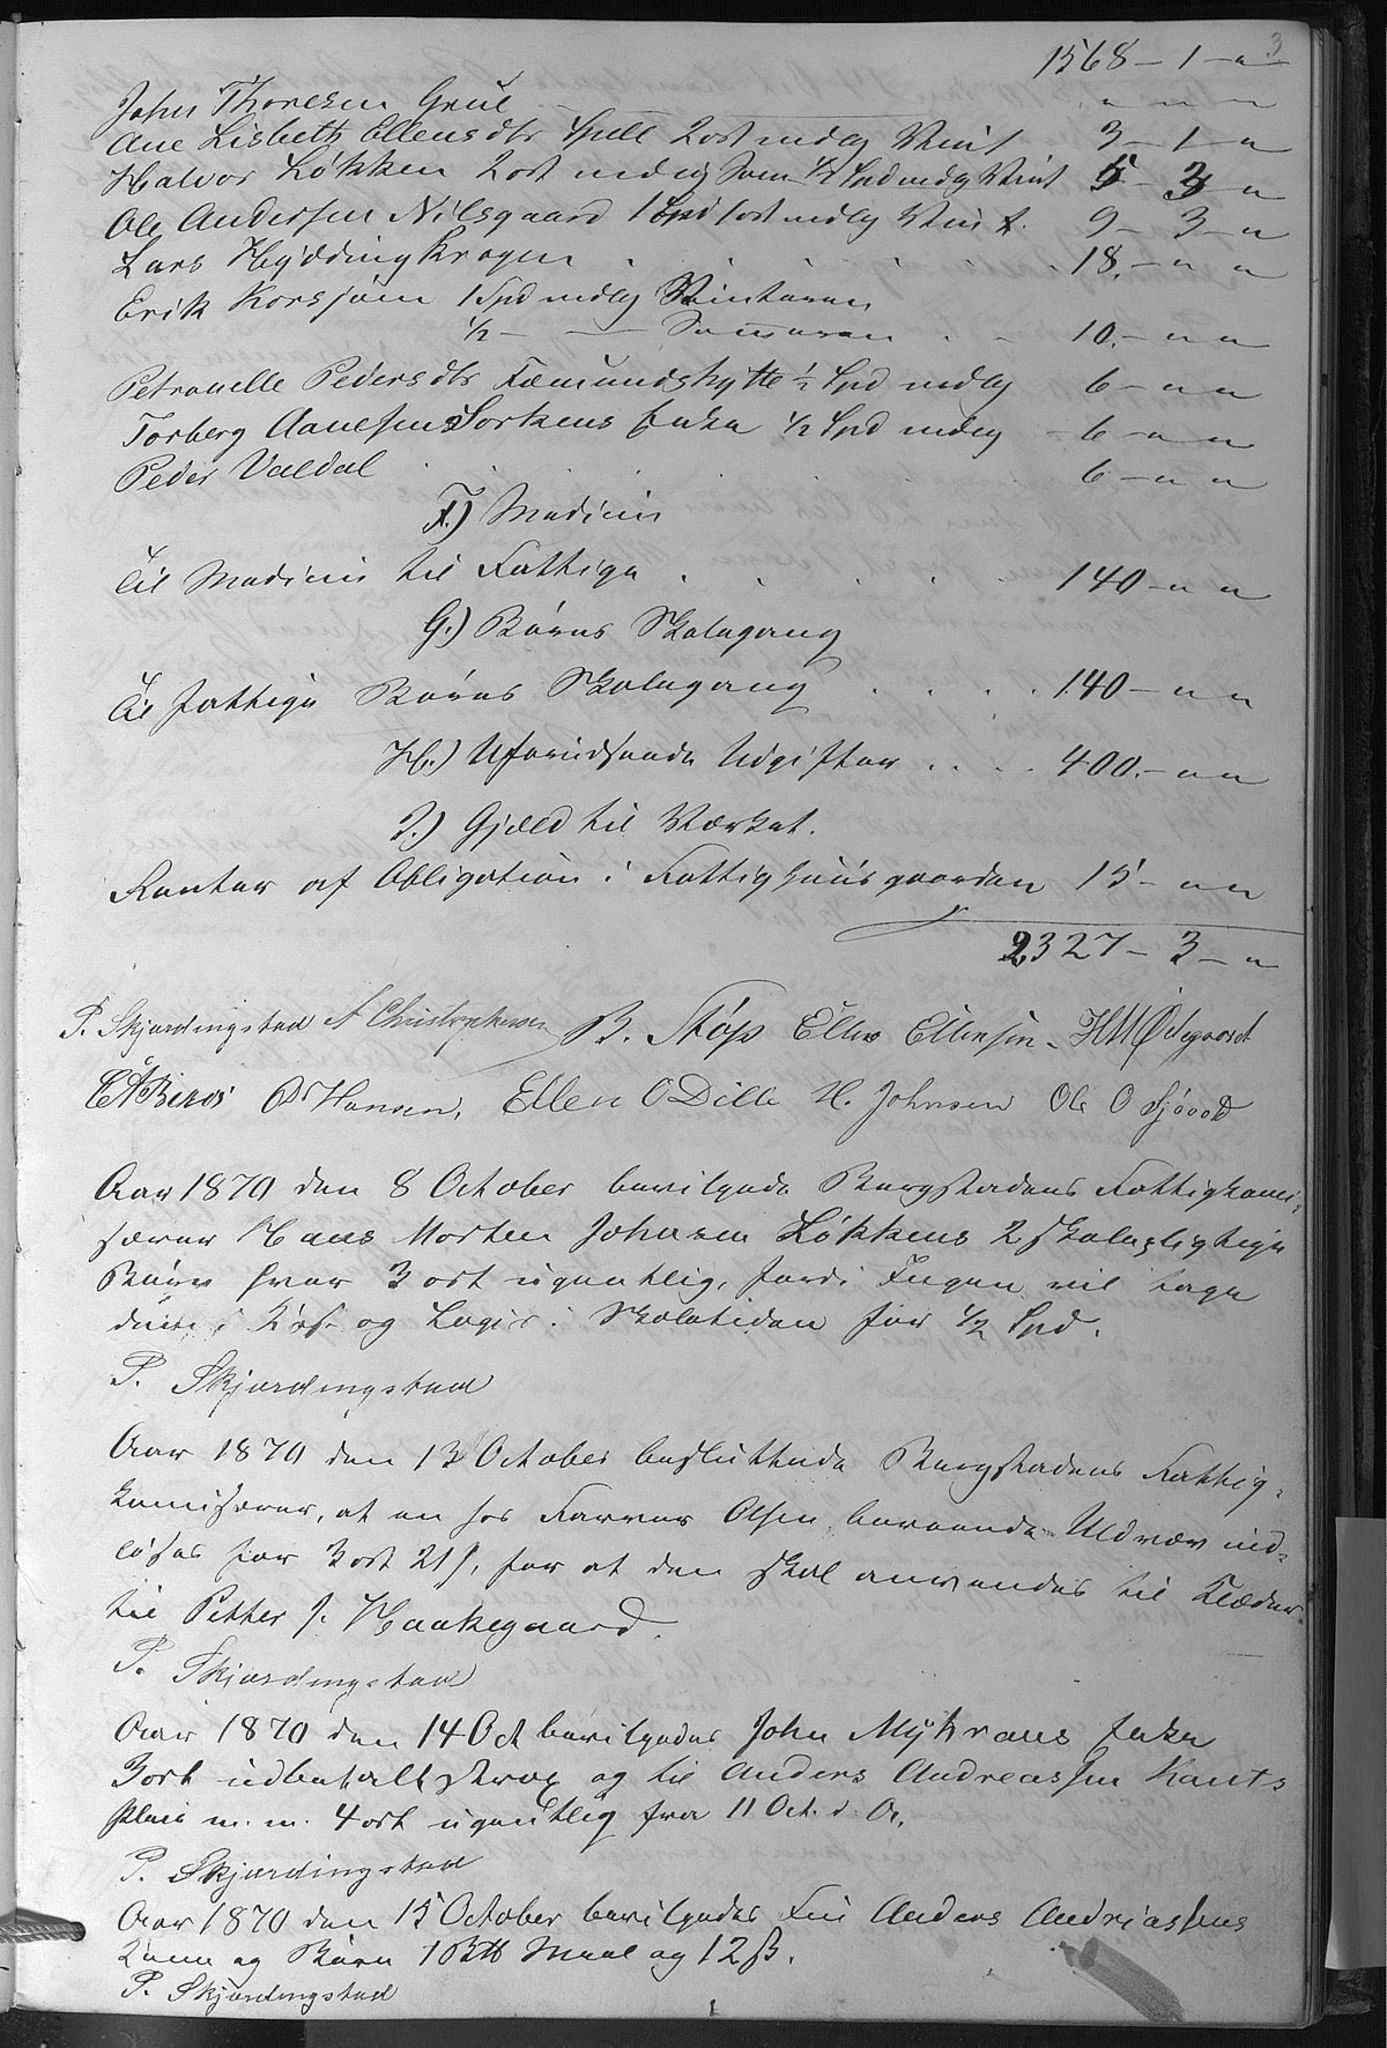 3
1568 - 1 - "
John Thoresen Grue " " "
Ane Lisbeth Ellensdtr Spell 2 ort mdlg Vint 3 - 1 - "
Halvor Løkken 2 ort mdlg Som 1/2 Spd mdlg Vint 5 - 3 - "
Ole Andersen Nilsgaard 1 Spd 1 ort mdlg Vint. 9 - 3 - "
Lars Hyddingkrogen . . . . . 18. - " "
Erik Korssjøen 1 Spd mdlg Vinteren
1/2 - — Sommeren . . 10. - " "
Petronelle Pedersdtr Fæmundshytte 1/2 Spd mdlg 6 - " "
Torberg Aanesens Sorkens Enke 1/2 Spd mdlg - 6 - " "
Peder Valdal . . . . 6 - " "
F.) Medicin
Til Medicin til Fattige . . . . . 140 - " "
G.) Børns Skolegang
Til fattige Børns Skolegang . . . . 140 - " "
H.) Uforudseede Udgifter . . . . 400. - " "
I.) Gjæld til Værket.
Renter af Obligation i Fattighuusgaarden 15 - " "
2327 - 3 - "
P. Skjærdingstad A Christophersen B. Støp Ellev Ellensen. HM Ødegaard
P Hansen. Ellen O Dille H. Johnsen Ole O Sjøvold
Aar 1870 den 8 October bevilgede Bergstadens Fattigkomi-
særer Hans Morten Johnsen Løkkens 2 skolepligtige
Børn hver 3 ort ugentlig, fordi Ingen vil tage
dem i Kost og Logis i Skoletiden for 1/2 Spd.
P. Skjærdingstad
Aar 1870 den 13 October besluttede Bergstadens Fattig-
komisærer, at en hos Farver Olsen beroende Uldvæv ind-
løses for 3 ort 21 ß, for at den skal anvendes til Klæder
til Petter J. Haakegaard.
P. Skjærdingstad
Aar 1870 den 14 Oct bevilgedes John Myhrens Enke
3 ort udbetalt strax og til Anders Andreassen Kants
Pleie m. m. 4 ort ugentlig fra 11 Oct. d. A.
P. Skjærdingstad
Aar 1870 den 15 October bevilgedes Anders Andreassens
Kone og Børn 1 Meel og 12 ß.
P. Skjærdingstad